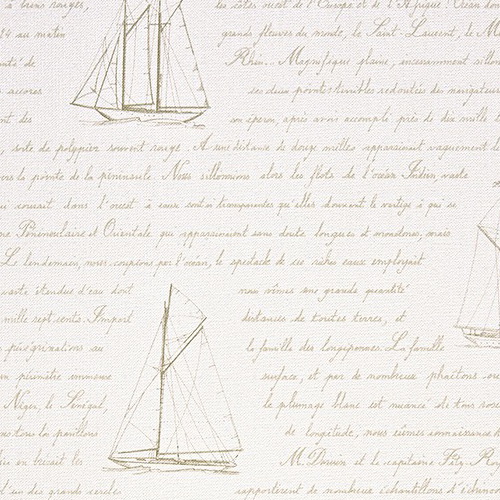 à bruns rouges, les côtes ouest de l'Europe et de l'Afrique. L'Océan
au matin grands fleuves du monde, le Saint-Laurent, le
de Rhin. Magnifique plaine, incessamment
accores ses deux pointes terribles redoutées des navigateurs
des son éperon, après avoir accompli près de dix mille
sorte de polypier souvent rougi. A une distance de douze milles apparaissait vaguement
la pointe de la péninsule Nous sillonnions alors les flots de l'océan Indien, vaste
qui couvait dans l'ouest à eaux sont si transparentes qu'elles donnent le vertige à qui se
Péninsulaire et Orientale que apparaissaient sans doute longues et monotones, mais
Le lendemain, nous coupions par l'océan, le spectacle de ces riches eaux employait
vaste étendue d'eau dont nous vîmes une grande quantité
mille sept cents. distances de toutes terres, et
pérégrinations au la famille des longipennes. La famille
périmètre immense surface, et par de nombreux phaétons
Niger, le Sénégal, le plumage blanc est nuancé de tons
tous les pavillons de longitude, nous eûmes connaissance
en brisait les M. Darwin et le capitaine Fitz-Roy
des grands cercles rapportèrent de nombreux échantillons